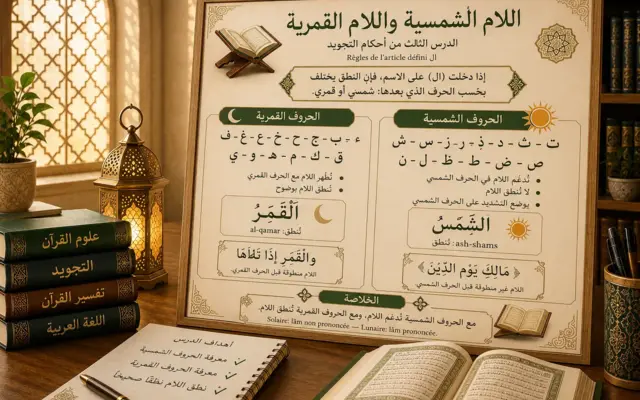 اللام الشمسية واللام القمرية
الدرس الثالث من أحكام التجويد
Règles de l'article défini ال
إذا دخلت (ال) على الاسم، فإن النطق يختلف
بحسب الحرف الذي بعدها: شمسي أو قمري.
الحروف الشمسية
ت - ث - د - ذ - ر - ز - س - ش
ص - ض - ط - ظ - ل - ن
تُدغم اللام في الحرف الشمسي
لا تُنطق اللام
يوضع التشديد على الحرف الشمسي
الشَّمْسُ
تُنطق: ash-shams
مَالِكِ يَوْمِ الدِّيْنِ
اللام غير منطوقة قبل الحرف الشمسي
الحروف القمرية
ء - ب - ج - ح - خ - ع - غ - ف
ق - ك - م - هـ - و - ي
تُظهر اللام مع الحرف القمري
تُنطق اللام بوضوح
اَلْقَمَرُ
تُنطق: al-qamar
والْقَمَرِ إذَا
اللام منطوقة قبل الحرف القمري.
الخلاصة
مع الحروف الشمسية تُدغم اللام، ومع الحروف القمرية تُنطق اللام.
Solaire: lâm non prononcée — Lunaire: lâm prononcée.
علوم القرآن
التجويد
تفسير القرآن
اللغة العربية
أهداف الدرس
معرفة الحروف الشمسية
معرفة الحروف القمرية
نطق اللام نطقًا صحيحًا